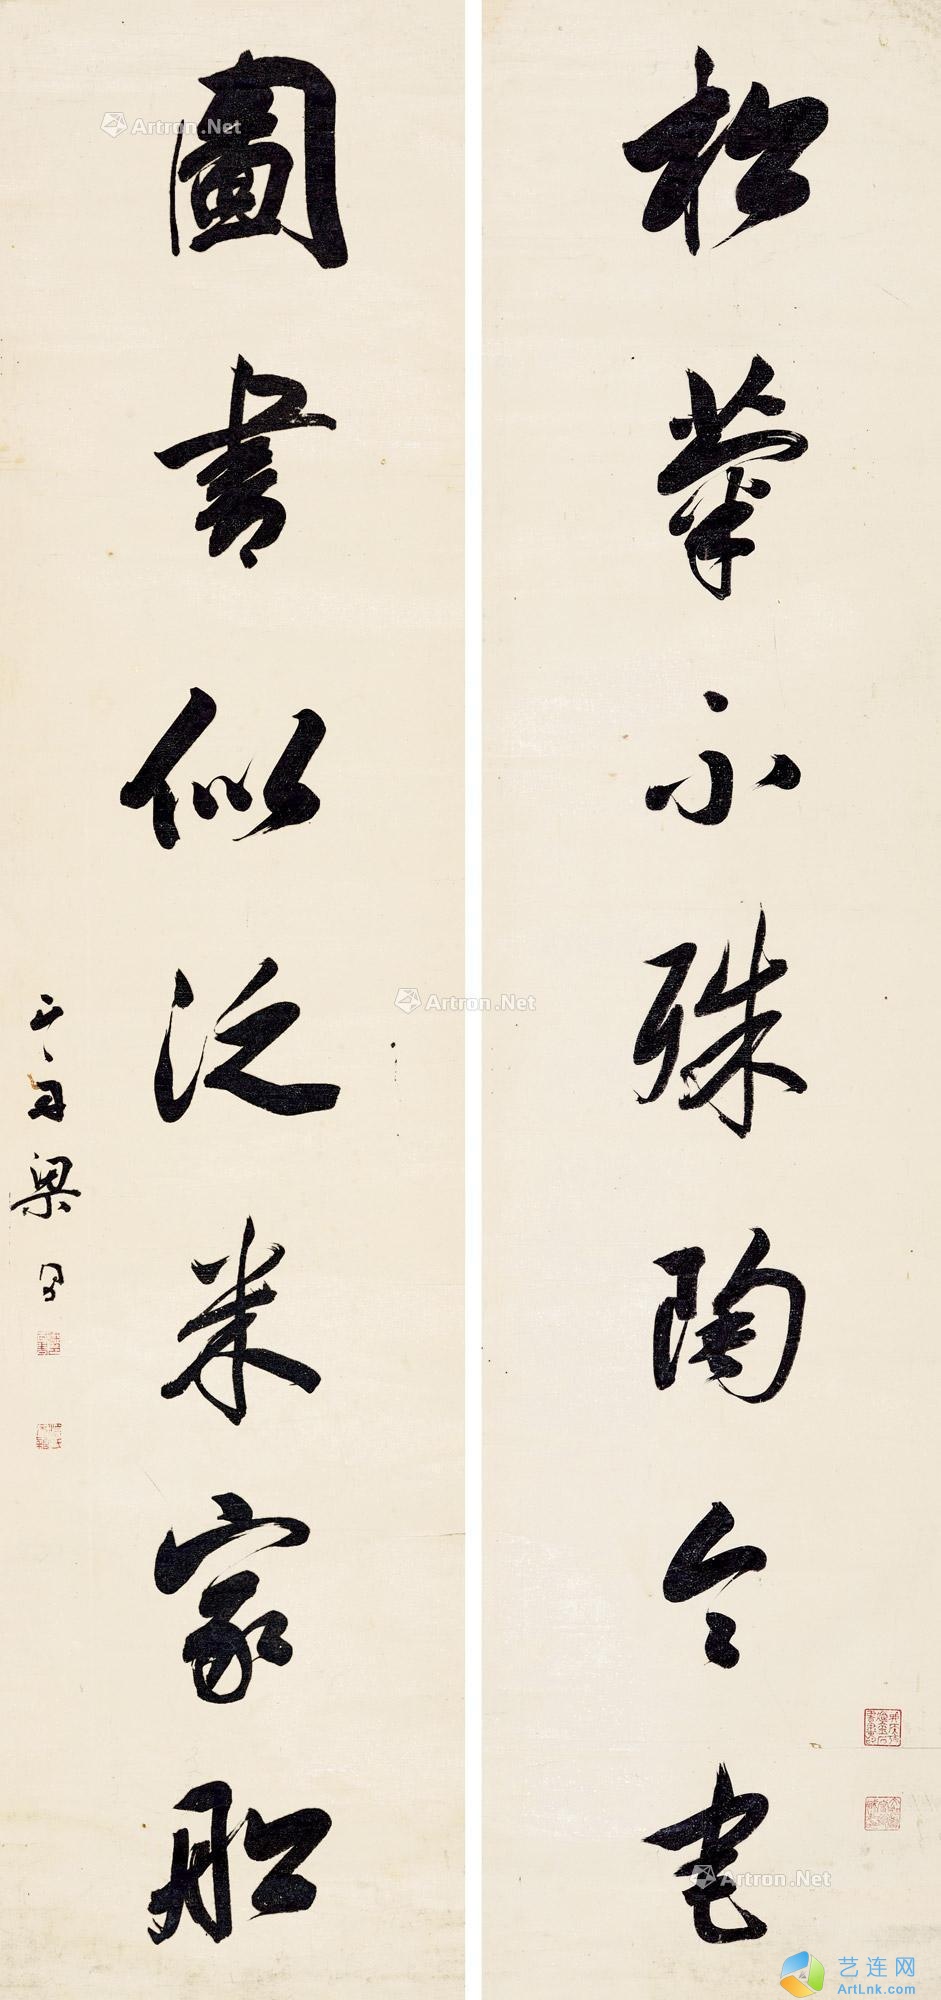 松菊不殊陶令宅
图书似泛米家船
山舟梁同书
Artron.Net
Artron.Net
Artron.Net
艺连网
ArtLnk.com